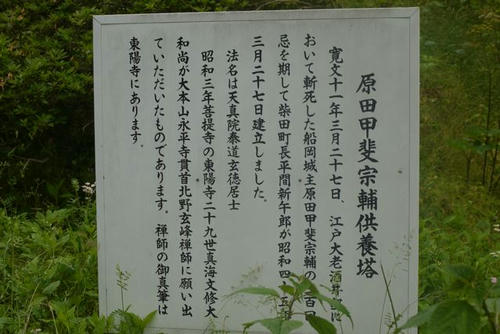 原田甲斐宗輔供養塔
寛文十一年三月二十七日、江戸大老酒井
おいて斬死した船岡城主原田甲斐宗輔の 百回
忌を期して柴田町長平間新午郎が昭和四 五
三月二十七日建立しました。
法名は天真院泰道玄徳居士
昭和三年菩提寺の東陽寺二十九世真海文修大
和尚が大本山永平寺貫首北野玄峰禅師に願い出
ていただいたものであります。禅師の御真筆は
東陽寺にあります。